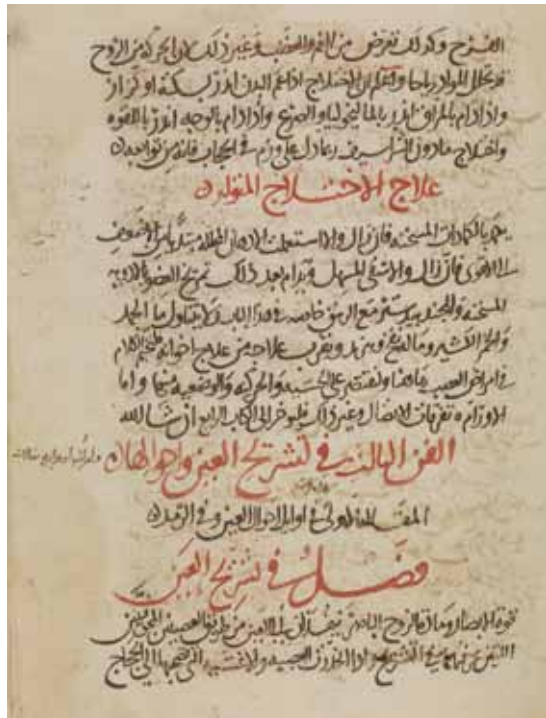 الفرح وكذلك تعرض من الغم والغضب وغير ذلك لان الحركة من الروح
قد تحلل المواد رياحا واعلم ان الاختلاج اذا عم البدن انذر بسكتة او كزاز
واذا دام بالمراق انذر بالماليخوليا والصرع واذا دام بالوجه انذر باللقوه
واختلاج ما دون الشراسيف ربما دل على ورم في الحجاب فانه من توابعه
علاج الاختلاج
بالكمادات المسخنه فان زال والا استعملت الادهان المحللة
الاقوى فان زال والا سقى المسهل ويدام بعد ذلك تمريخ العضو بالادويه
المسخنه والجندبيدستر مع الزيت خاصه في هذا الباب ولا يتناول ما الجمد
والخمر الكثير وما له نفخ وتبريد ويقرب علاجه من علاج اخواته فلنختم الكلام
في امراض العصب هاهنا ولنقتصر على الحسيه والحركيه والوضعيه منها واما
الاورام وتفرقات الاتصال وغير ذلك فليؤخر الى الكتاب الرابع ان شا الله
الفن الثالث في تشريح العين واحوالها
المقالة الاولى في اوايل احوال العين وفي الرمد
فصل في تشريح العين
قوة الابصار ومادة الروح الباصر تنفذ الى العين من طريق العصبتين المجوفتين
اللتين عرفتهما في التشريح واذا انحدرت العصبه والاغشيه التي تصحبها الى الحجاج